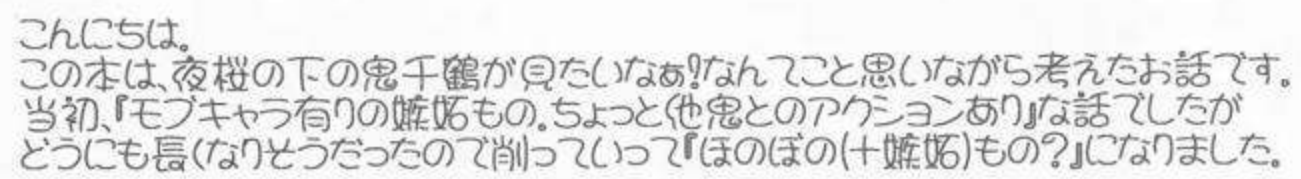 こんにちは。
この本は、夜桜の下の鬼千鶴が見たいなぁ!なんてこと思いながら考えたお話です。
当初、『モブキャラ有りの嫉妬もの。ちょっと他鬼とのアクションあり』な話でしたが
どうにも長くなりそうだったので削っていって『ほのぼの(+嫉妬)もの?』になりました。